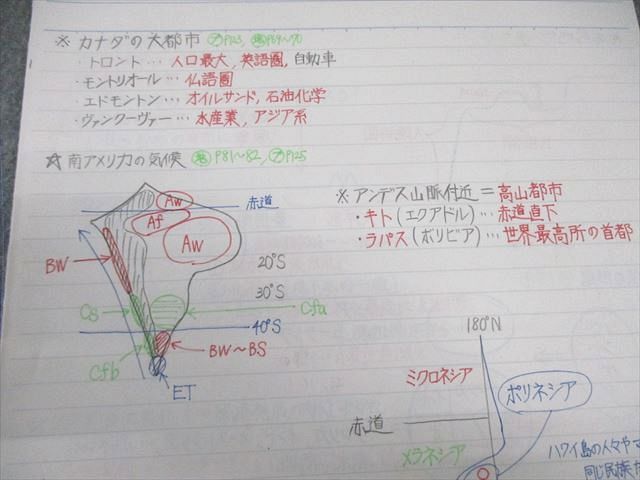 ※ カナダの大都市 P123, P69〜70
・トロント … 人口最大, 英語圏, 自動車
・モントリオール … 仏語圏
・エドモントン … オイルサンド, 石油化学
・ヴァンクーヴァー … 水産業, アジア系
☆南アメリカの気候 P81〜82, P125
Aw
赤道
Af
Aw
BW
20°S
30°S
Cs
Cfa
40°S
BW〜BS
Cfb
ET
※アンデス山脈付近 = 高山都市
・キト (エクアドル) … 赤道直下
・ラパス (ボリビア) … 世界最高所の首都
180°N
ミクロネシア
ポリネシア
赤道
メラネシア
ハワイ島の人々や
同じ民族